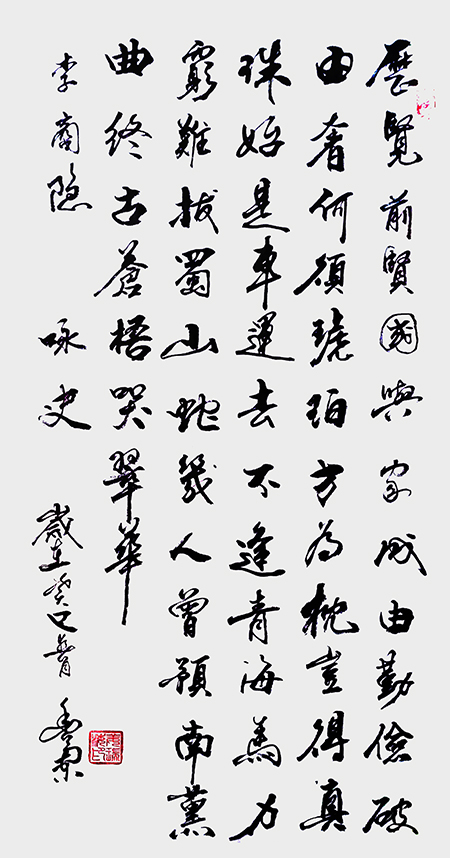 歷覽前賢國與家成由勤儉破
由奢何須琥珀方為枕豈得真
珠始是車運去不逢青海馬力
窮難拔蜀山蛇幾人曾預南薰
曲終古蒼梧哭翠華
李商隐 咏史 歲在癸巳